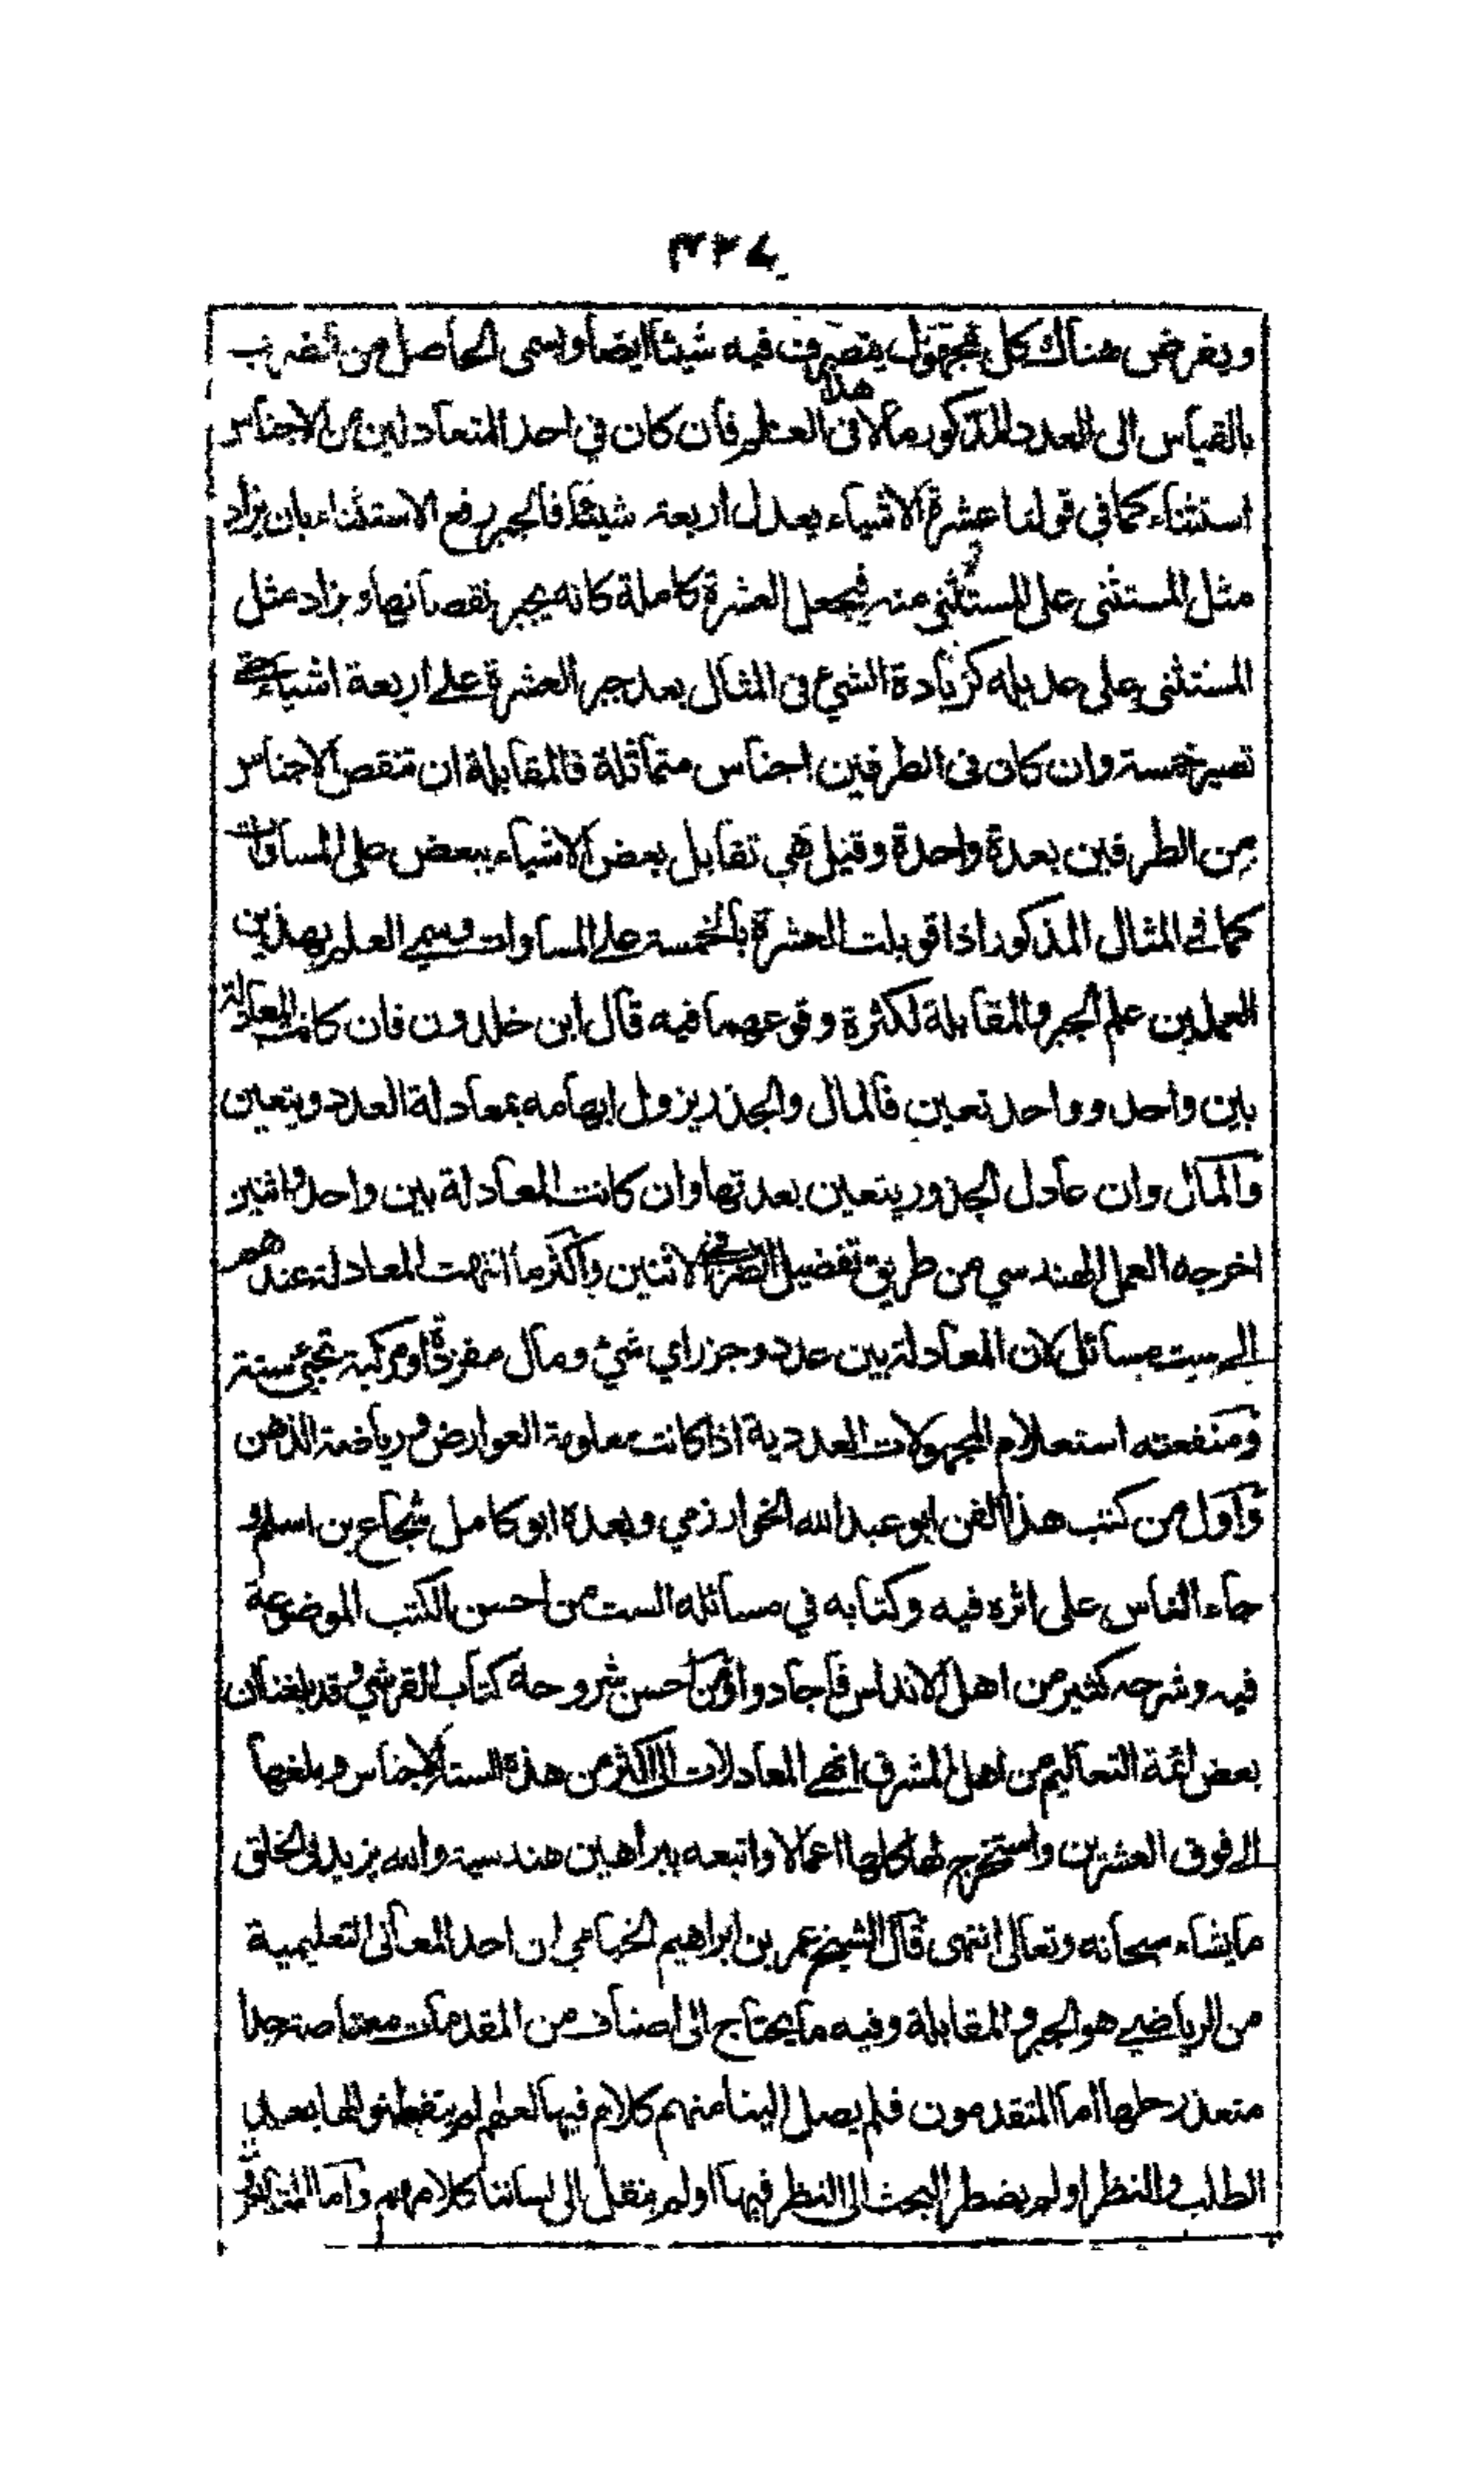 ٣٢٤
ويفرض هناك كل مجهول يتصرف فيه شيئا ايضا واسمى الحاصل من الضرب
بالقياس الى العدد المذكور مالا فى هذا العلم فان كان في احد المتعادلين من الاجناس
استثناء كما فى قولنا عشرة الاشياء يعدل اربعة شيئا فالجبر رفع الاستثناء بان يزاد
مثل المستثنى على المستثنى منه فيجعل العشرة كاملة كانه يجبر نقصانها ويزاد مثل
المستثنى على عديله كزيادة الشيء فى المثال بعد جبر العشرة على اربعة اشياء حتى
تصير خمسة وان كان فى الطرفين اجناس متماثلة فالمقابلة ان تنقص الاجناس
من الطرفين بعدة واحدة وقيل هي تقابل بعض الاشياء ببعض على المساوات
كما فى المثال المذكور اذا قوبلت العشرة بالخمسة على المساوات وسمي العلم بهذين
العملين علم الجبر والمقابلة لكثرة وقوعهما فيه قال ابن خلدون فان كانت المعادلة
بين واحد وواحد تعين فالمال والجذر يزول ابهامه بمعادلة العدد ويتعين
والمال وان عادل الجذور يتعين بعدتها وان كانت المعادلة بين واحد واثنين
اخرجه العمل الهندسي من طريق تفضيل الضرب فى الاثنين واكثر ما انتهت المعادلة عندهم
الى ست مسائل لان المعادلة بين عدد وجزر اي شئ ومال مفردة او مركبة تجئ ستة
ومنفعته استعلام المجهولات العددية اذا كانت معلومة العوارض ورياضة الذهن
واول من كتب هذا الفن ابو عبد الله الخوارزمي وبعده ابو كامل شجاع بن اسلم و
جاء الناس على اثره فيه وكتابه في مسائله الست من احسن الكتب الموضوعة
فيه وشرحه كثير من اهل الاندلس فاجادوا ومن احسن شروحه كتاب القرشي وقد بلغنا ان
بعض ائمة التعاليم من اهل المشرق انهى المعادلات الى اكثر من هذه الستة الاجناس وبلغها
الى فوق العشرين واستخرج لها كلها اعمالا واتبعه ببراهين هندسية والله يزيد فى الخلق
ما يشاء سبحانه وتعالى انتهى قال الشيخ عمر بن ابراهيم الخيامي ان احد المعانى التعليمية
من الرياضي هو الجبر والمقابلة وفيه ما يحتاج الى اصناف من المقدمات معتاصة جدا
متعذر حلها اما المتقدمون فلم يصل الينا منهم كلام فيها لعلهم لم يتفطنوا لها بعد
الطلب والنظر او لم يضطر البحث الى النظر فيها او لم ينقل الى لساننا كلامهم واما المتاخرون